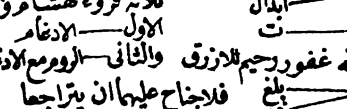 ابدال ثلاثة قروء هشام و
نت الاول ـــ الادغام
ه غفور رحيم للازرق والثانى ـــ الروم مع الاد
يلغ فلاجناح عليهما ان يتراجعا